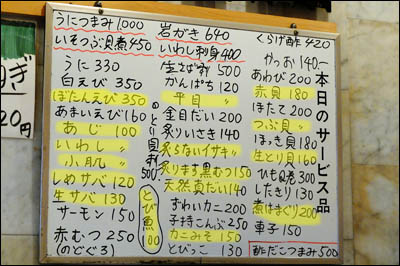 本日のサービス品
うにつまみ 1,000
いそつぶ貝煮 450
岩がき 640
いわし刺身 400
くらげ酢 420
かつお 140
あわび 200
赤貝 180
ほたて 200
つぶ貝 〃
ほっき貝 180
生とり貝 160
ひも貝巻 300
したきり 130
煮はまぐり 200
車子 150
酢だこつまみ 500
生さば刺 500
かんぱち 120
平目 〃
金目だい 200
炙りいさき 140
炙らないイサキ 〃
炙ります黒むつ 150
天然真だい 140
ずわいカニ 200
子持こんぶ 250
カニみそ 150
とびっこ 130
うに 330
白えび 350
ぼたんえび 350
あまいえび 160
あじ 100
いわし 〃
小肌 〃
しめサバ 120
生サバ 130
サーモン 150
赤むつ 250
(のどぐろ)
とび魚 100
ぎ
20円